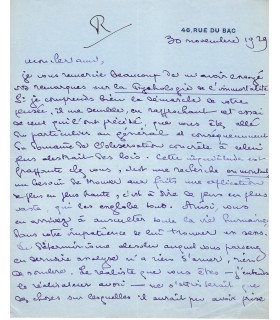 R
46, RUE DU BAC
30 novembre 1929
mon cher ami,
je vous remercie beaucoup de m'avoir envoyé
vos remarques sur la Psychologie de l'immortalité
Si je comprends bien la démarche de votre
pensée, il me semble, en rapprochant cet essai
de ceux qui l'ont précédé, que vous êtes allé
du particulier au général et conséquemment
du domaine de l'observation concrète à celui
plus abstrait des lois. Cette inquiétude est
frappante chez vous, c'est une recherche
un besoin de trouver aux faits une explication
de plus en plus haute, c'est à dire de plus en plus
vaste qui les englobe tous. Ainsi, vous
en arrivez à ausculter toute la vie humaine
dans votre impatience de lui trouver un sens.
Le déterminisme absolu auquel vous passez
en dernière analyse n'a rien d'amer, rien
de sombre. Le réaliste que vous êtes — j'entends
le réalisateur aussi — ne s'attriste que
des choses sur lesquelles il aurait pu avoir prise